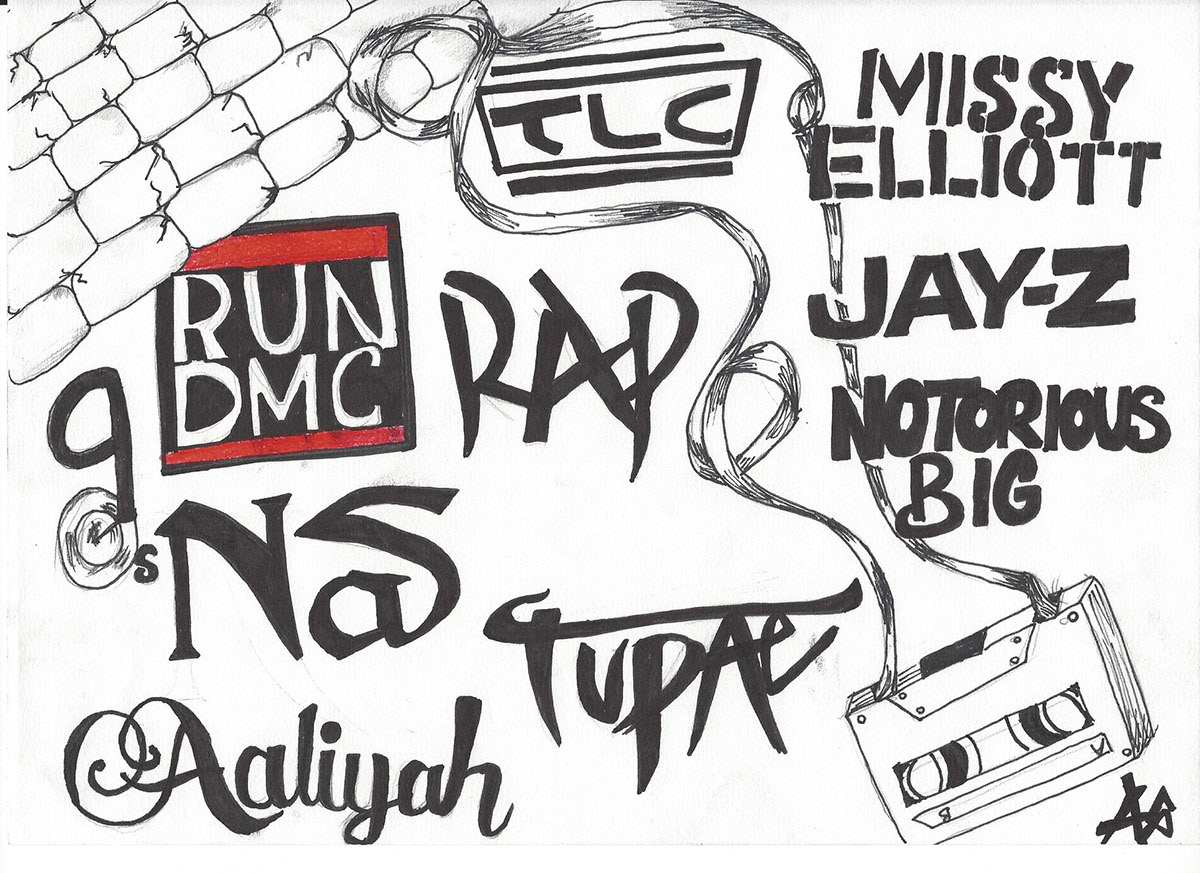 TLC
MISSY
ELLIOTT
RUN
DMC
RAP
JAY-Z
NOTORIOUS
BIG
90s
NaS
TUPAC
Aaliyah